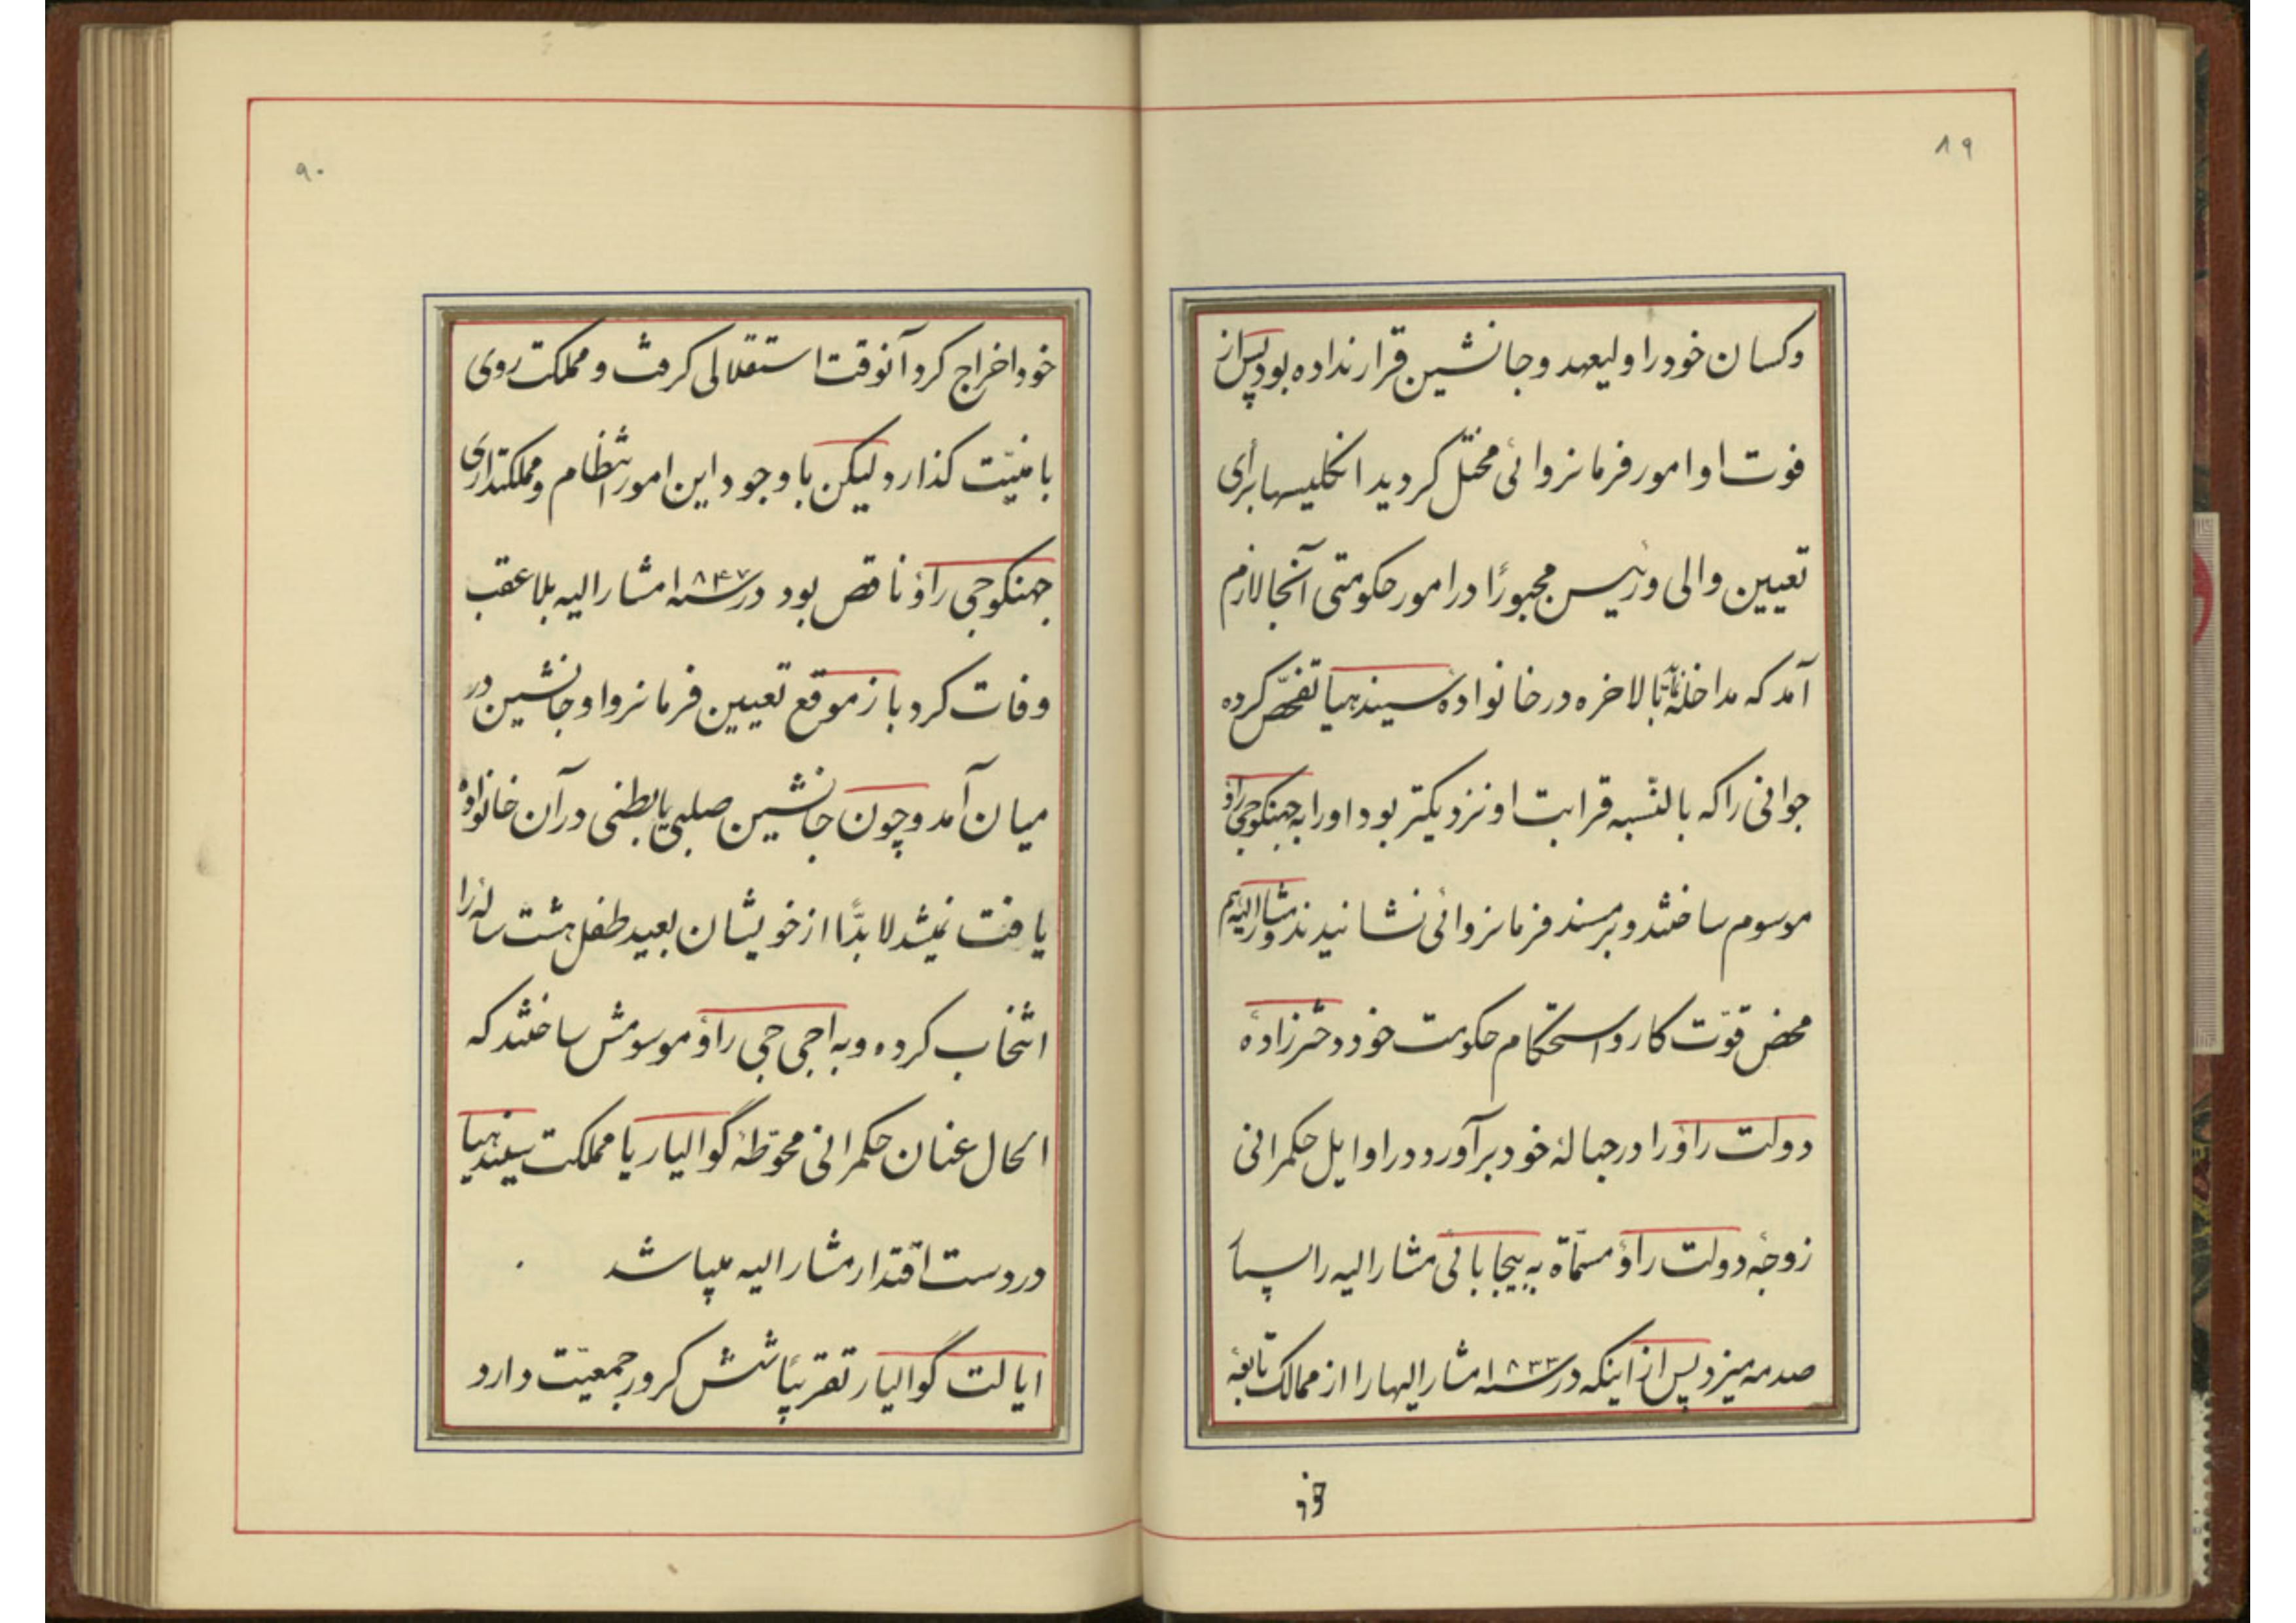 ۸۹
وکسان خود را ولیعهد و جانشین قرار نداده بود پس از
فوت او امور فرمانروائی مختل گردید انگلیسها برای
تعیین والی و رئیس مجبوراً در امور حکومتی آنجا لازم
آمد که مداخله نمایند بالاخره در خانوادهٔ سیندهیا تفحّص کرده
جوانی را که بالنّسبه قرابت او نزدیکتر بود او را به جهنکوجی راؤ
موسوم ساختند و بر مسند فرمانروائی نشانیدند و مشارالیه هم
محض قوّت کار و استحکام حکومت خود دخترزادهٔ
دولت راؤ را در حبالهٔ خود برآورد در اوایل حکمرانی
زوجهٔ دولت راؤ مسمّاة به بیجابائی مشارالیه را اسباب
صدمه میزد پس از اینکه در سنه ۱۸۳۳ مشارالیها را از ممالک تابعهٔ
خود
۹۰
خود اخراج کرد آنوقت استقلالی گرفت و مملکت روی
بامنیّت گذارد لیکن با وجود این امور انتظام و مملکتداری
جهنکوجی راؤ ناقص بود در سنه ۱۸۴۷ مشارالیه بلاعقب
وفات کرد باز موقع تعیین فرمانروا و جانشین در
میان آمد و چون جانشین صلبی یا بطنی در آن خانوادهٔ
یافت نمیشد لابدّاً از خویشان بعید طفل هشت ساله را
انتخاب کرده و به اجی جی راؤ موسومش ساختند که
الحال عنان حکمرانی محوّطهٔ گوالیار یا مملکت سیندهیا
در دست اقتدار مشارالیه میباشد
ایالت گوالیار تقریباً شش کرور جمعیّت دارد